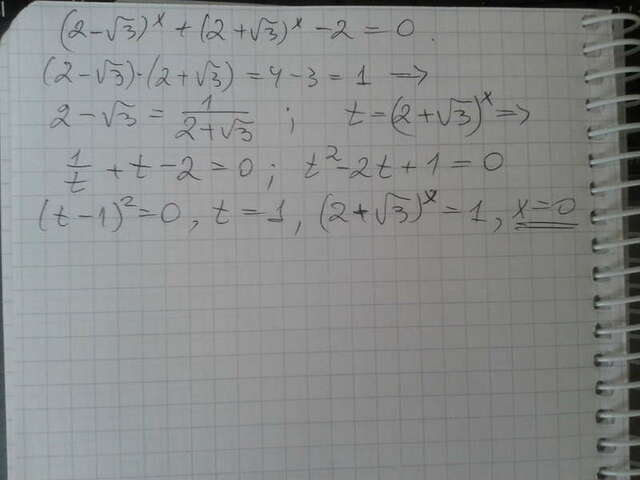 (2-√3)^x + (2+√3)^x - 2 = 0.
(2-√3)·(2+√3) = 4-3 = 1 →
2-√3 = 1/(2+√3) ; t = (2+√3)^x ⇒
1/t + t - 2 = 0 ; t² - 2t + 1 = 0
(t-1)² = 0 , t = 1 , (2+√3)^x = 1 , x = 0